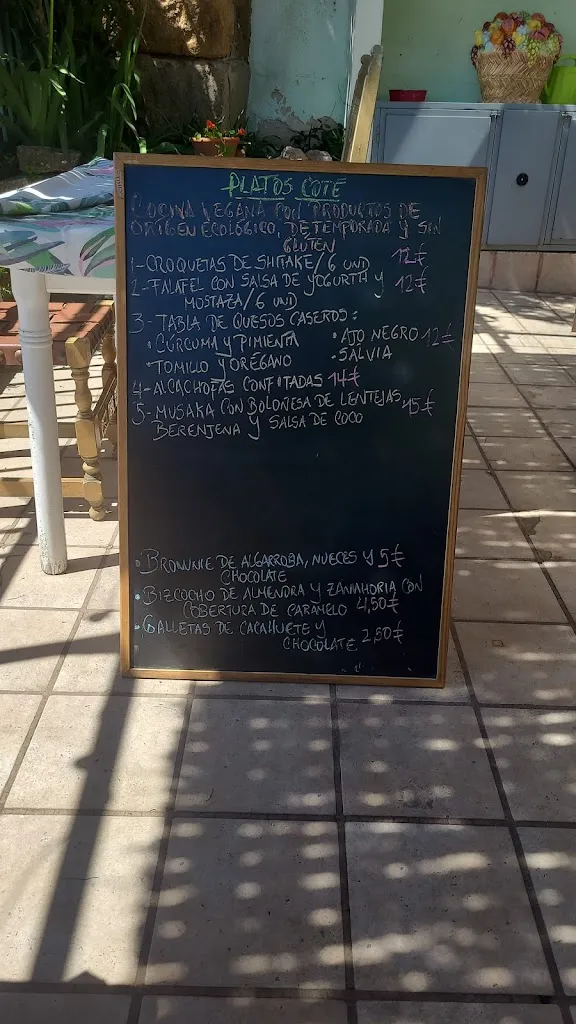 PLATOS COTÉ
COCINA VEGANA CON PRODUCTOS DE
ORIGEN ECOLÓGICO, DE TEMPORADA Y SIN
GLUTEN
1-CROQUETAS DE SHITAKE/6 UND 12€
2-FALAFEL CON SALSA DE YOGURTH Y 12€
MOSTAZA/6 UND
3-TABLA DE QUESOS CASEROS:
·CÚRCUMA Y PIMIENTA ·AJO NEGRO 12€
·TOMILLO Y ORÉGANO ·SALVIA
4-ALCACHOFAS CONFITADAS 14€
5-MUSAKA CON BOLOÑESA DE LENTEJAS, 15€
BERENJENA Y SALSA DE COCO
·BROWNIE DE ALGARROBA, NUECES Y 5€
CHOCOLATE
·BIZCOCHO DE ALMENDRA Y ZANAHORIA CON
COBERTURA DE CARAMELO 4,50€
·GALLETAS DE CACAHUETE Y
CHOCOLATE 2,50€